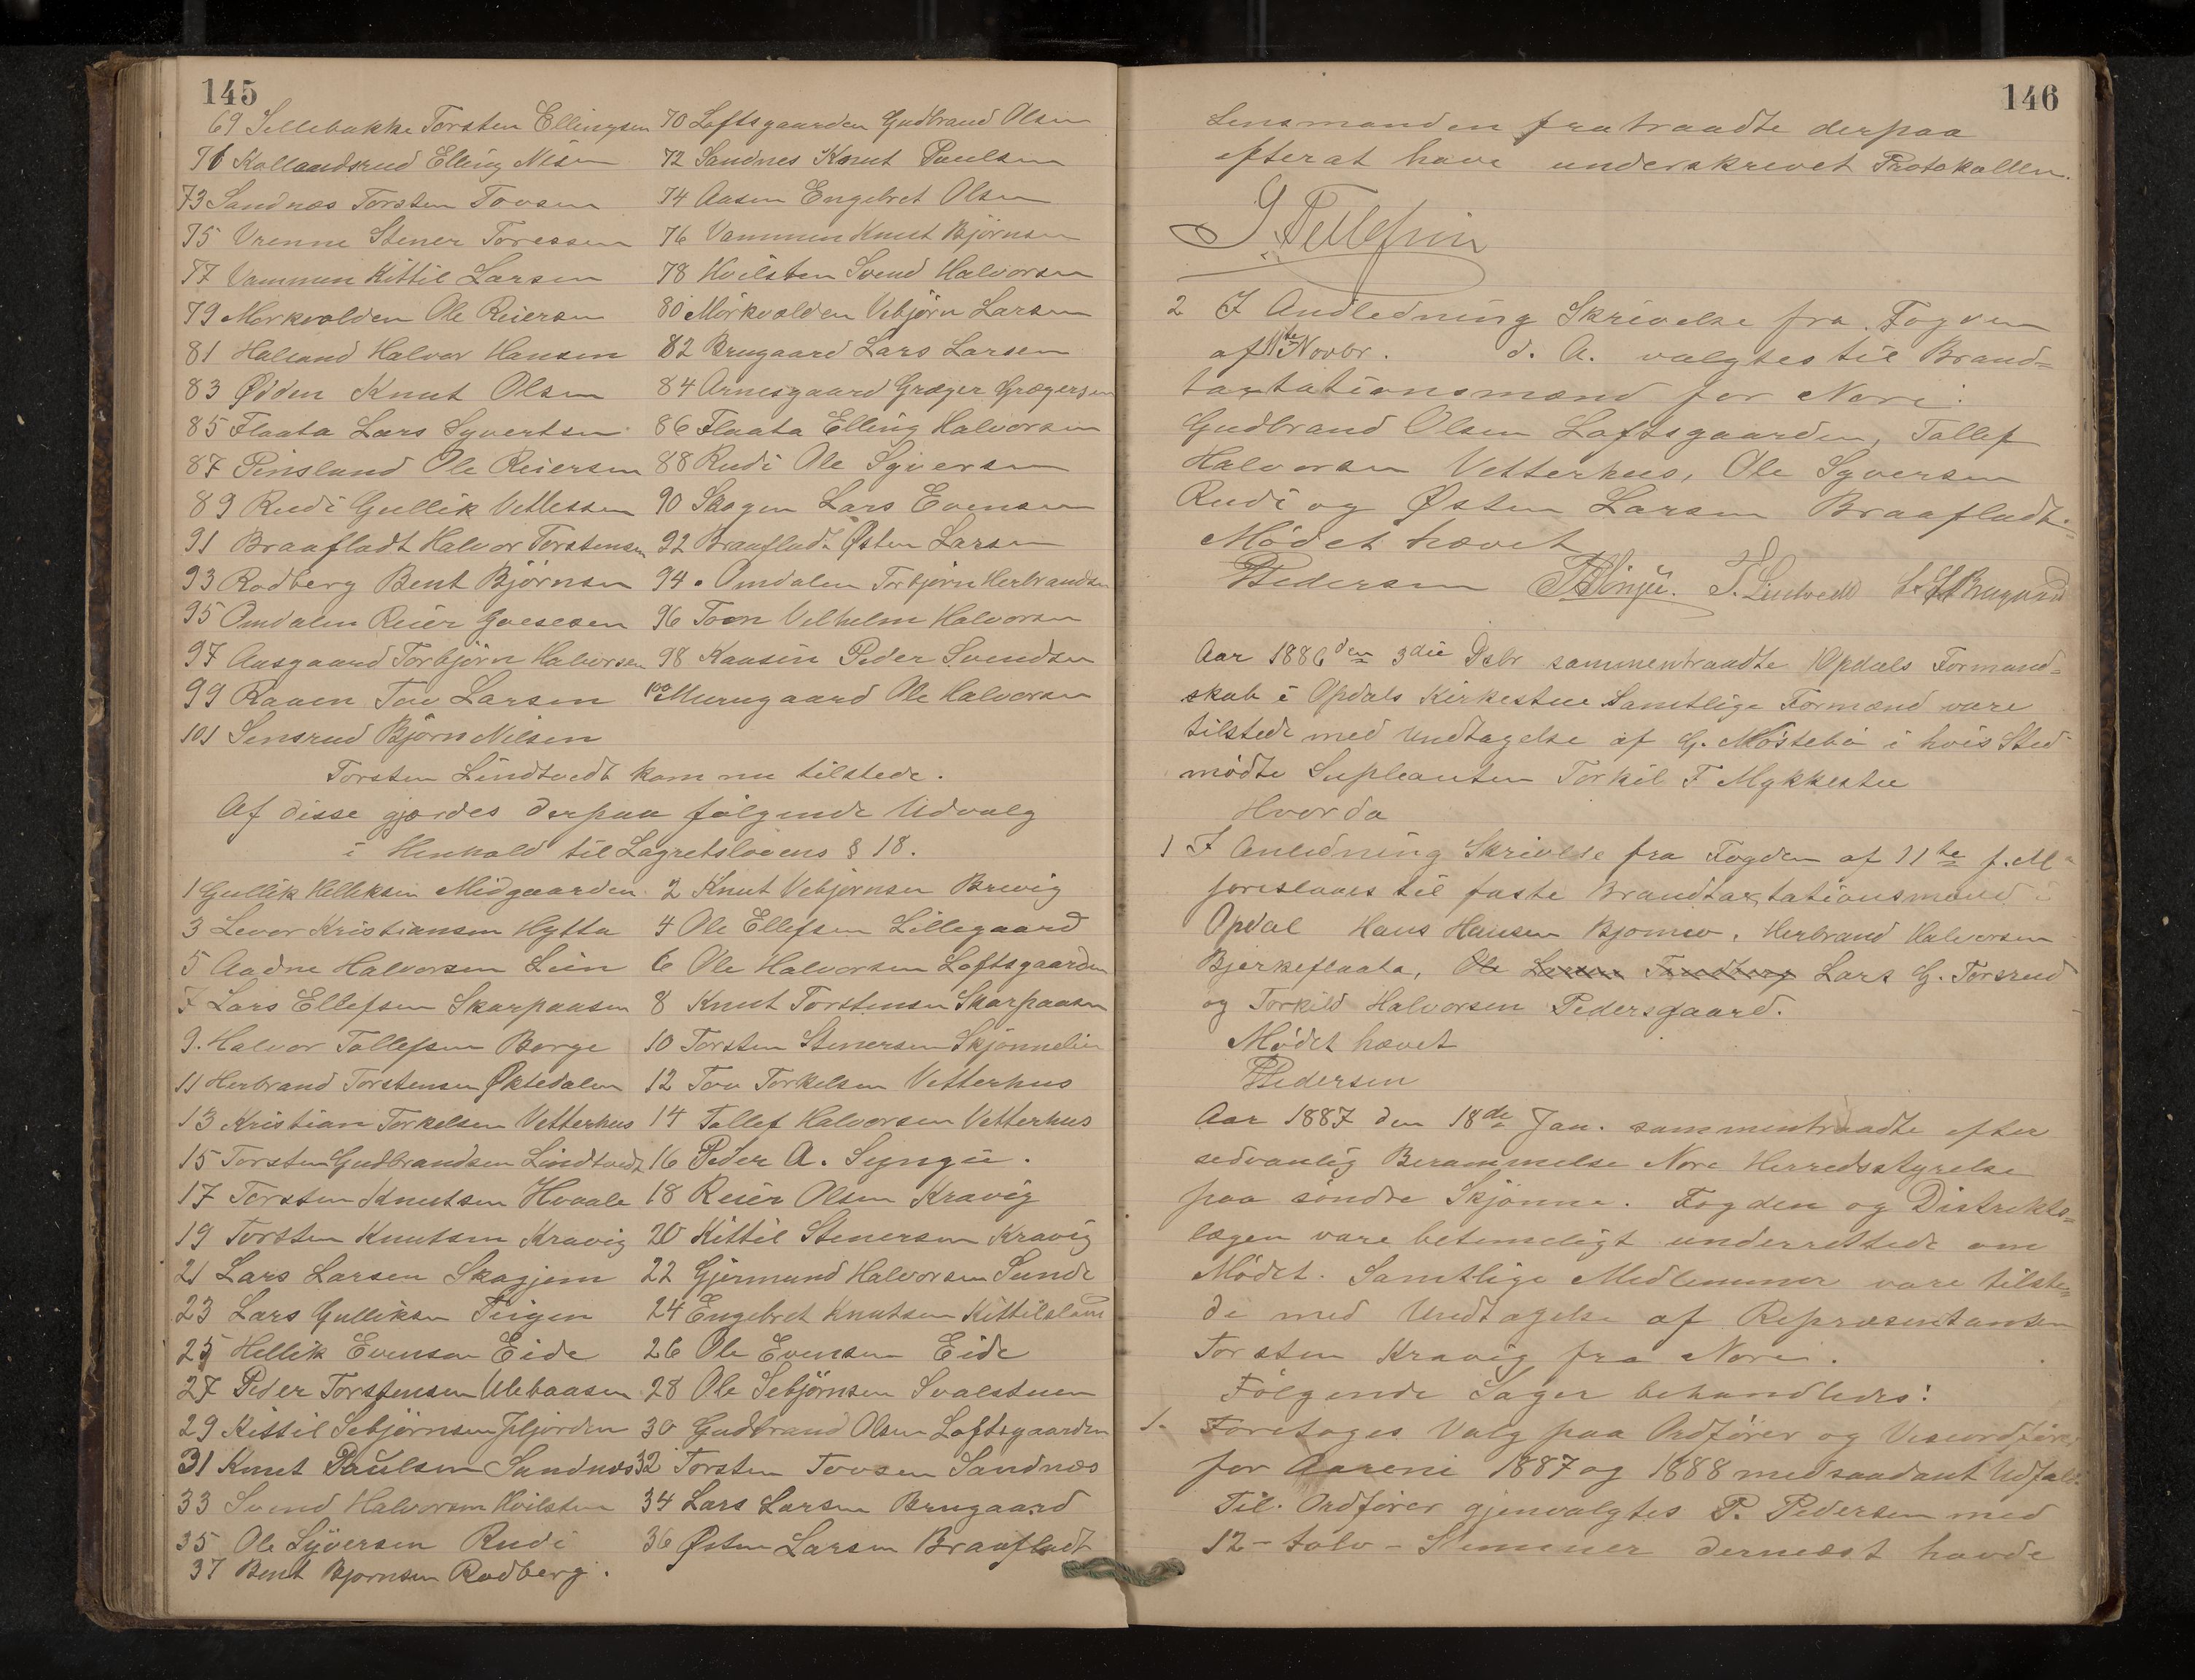 145
69 Sellebakke Torsten Ellingsen 70 Loftsgaarden Gudbrand Olsen
71 Kollandsrud Elling Nisen 72 Sandnes Knut Paulsen
73 Sandnæs Torsten Tovsen 74 Aasen Engebret Olsen
75 Vrenne Stener Toressen 76 Vammen Knut Björnsen
77 Vammen Kittil Larsen 78 Hvilsten Svend Halvorsen
79 Morkvolden Ole Reiersen 80 Mörkvolden Vebjörn Larsen
81 Halland Halvor Hansen 82 Brugaard Lars Larsen
83 Ødden Knut Olsen 84 Arnesgaard Græger Grægersen
85 Flaata Lars Syvertsen 86 Flaata Elling Halvorsen
87 Pinsland Ole Reiersen 88 Rudi Ole Syversen
89 Rudi Gullik Vetlessen 90 Skogen Lars Evensen
91 Braafladt Halvor Torstensen 92 Braaflad. Østen Larsen
93 Rodberg Bent Björnsen 94. Omdalen Torbjörn Herbrandsen
95 Omdalen Reier Goesesen 96 Toen Vilhelm Halvorsen
97 Aasgaard Torbjörn Halvorsen 98 Kaasin Peder Svendsen
99 Raaen Tov Larsen 100 Murugaard Ole Halvorsen
101 Sensrud Björn Nilsen
Torsten Lindtvedt kom nu tilstede.
Af disse gjordes derpaa følgende Udvalg
i Henhold til Lagretslovens § 18.
1 Gullik Helliksen Midgaarden 2 Knut Vebjørnsen Brevig
3 Levor Kristiansen Hytta 4 Ole Ellefsen Lillegaard
5 Aadne Halvorsen Lien 6 Ole Halvorsen Loftsgaarden
7 Lars Ellefsen Skarpaasen 8 Knut Torstensen Skarpaasen
9. Halvor Tollefsen Borge 10 Torsten Stenersen Skjönnelien
11 Herbrand Torstensen Øktedalen 12 Tov Torkelsen Vetterhus
13 Kristian Torkelsen Vetterhus 14 Tollef Halvorsen Vetterhus
15 Torsten Gudbrandsen Lindtvedt 16 Peder A. Synge.
17 Torsten Knutsen Hvaale 18 Reier Olsen Kravig
19 Torsten Knutsen Kravig 20 Kittil Stenersen Kravig
21 Lars Larsen Skagjem 22 Gjermund Halvorsen Sunde
23 Lars Gulliksen Teigen 24 Engebret Knutsen Kittilsland
25 Hellik Evensen Eide 26 Ole Evensen Eide
27 Peder Torstensen Ulebaasen 28 Ole Sebjørnsen Svalstuen
29 Kittil Sebjørnsen Fljorden 30 Gudbrand Olsen Loftsgaarden
31 Knut Paulsen Sandnæs 32 Torsten Tovsen Sandnæs
33 Svend Halvorsen Hvilsten 34 Lars Larsen Brugaard
35 Ole Syversen Rudi 36 Østen Larsen Braafladt
37 Bent Bjornsen Rodberg.
146
Lensmanden fratraadte derpaa
efterat have underskrevet Protokollen.
G. Tellefsen
2 I Andledning Skrivelse fra Fogden
af 11te Novbr. d. A. valgtes til Brand=
taxtationsmænd for Nore:
Gudbrand Olsen Loftsgaarden, Tollef
Halvorsen Vetterhus, Ole Syversen
Rudi og Østen Larsen Braafladt.
Mödet hævet
PPedersen T. Lindtvedt L. L. Brugaard
Aar 1886 den 3die Dsbr sammentraadte Opdals Formand=
skab i Opdals Kirkestue Samtlige Formænd vare
tilstede med Undtagelse af G. Möstebö i hvis Sted
mödte Supleanten Torkil T Mykkestue
Hvor da
1 I Anledning Skrivelse fra Fogden af 11te f. M
foreslaaes til faste Brandtaxtationsmænd i
Opdal Hans Hansen Bjomen, Herbrand Halvorsen
Bjerkeflaata, Ole Larsen Tandberg Lars G. Torsrud
og Torkild Halvorsen Pedersgaard.
Mödet hævet
PPedersen
Aar 1887 den 18de Jan. sammentraadte efter
sedvanlig Berammelse Nore Herredsstyrelse
paa söndre Skjönne. Fogden og Distrikts=
lægen vare betimeligt underrettede om
Mödet. Samtlige Medlemmer vare tilste=
de med Undtagelse af Repræsentanten
Torsten Kravig fra Nore.
Fölgende Sager behandledes:
1. Foretoges Valg paa Ordförer og Viseordförer
for Aarene 1887 og 1888 med saadant Udfald:
Til Ordförer gjenvalgtes P. Pedersen med
12 - tolv - Stemmer dernæst havde